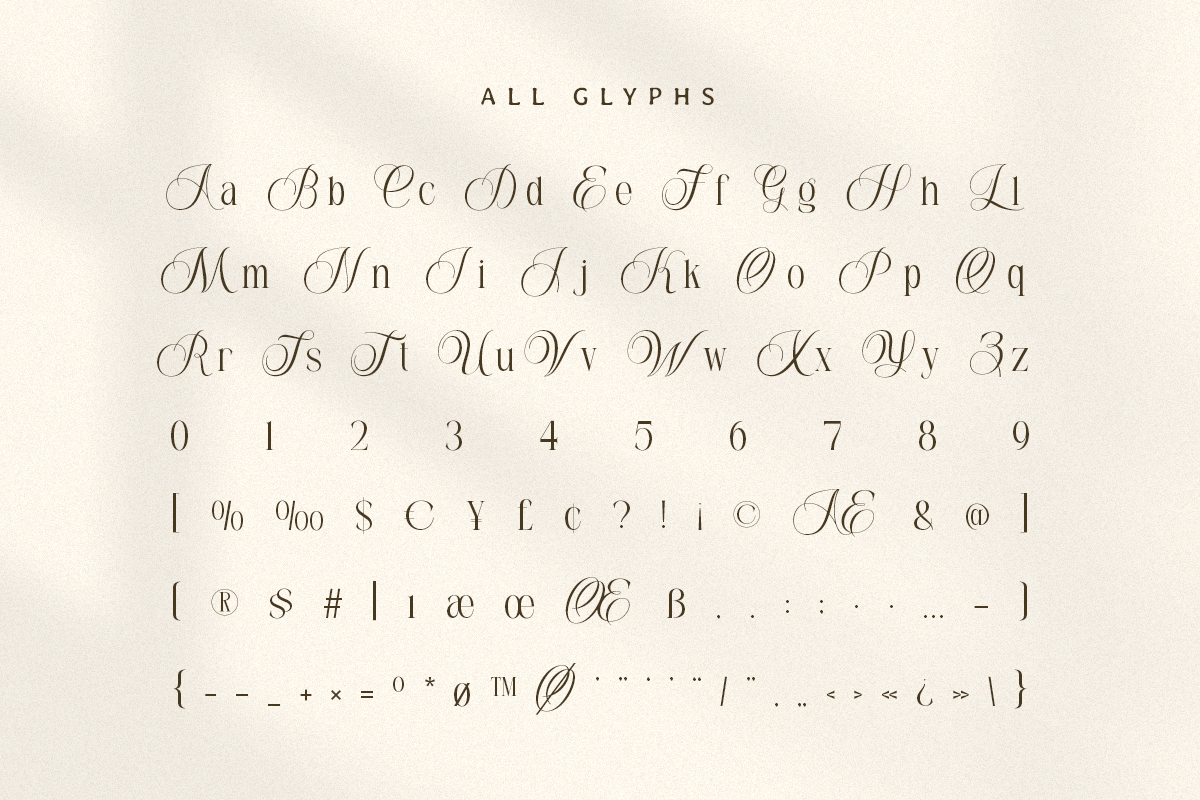 ALL GLYPHS
Aa Bb Cc Dd Ee Ff Gg Hh Ll
Mm Nn Ii Jj Kk Oo Pp Qq
Rr Ss Tt Uu Vv Ww Xx Yy Zz
0 1 2 3 4 5 6 7 8 9
[ % ‰ $ € ¥ £ ¢ ? ! ¡ © Æ & @ ]
[ ® § # | ı æ œ Œ ß . . : : · · … – ]
{ – – _ + × = º * ø ™ Ø ' " ' ' " / " . .. < > « ¿ » \ }